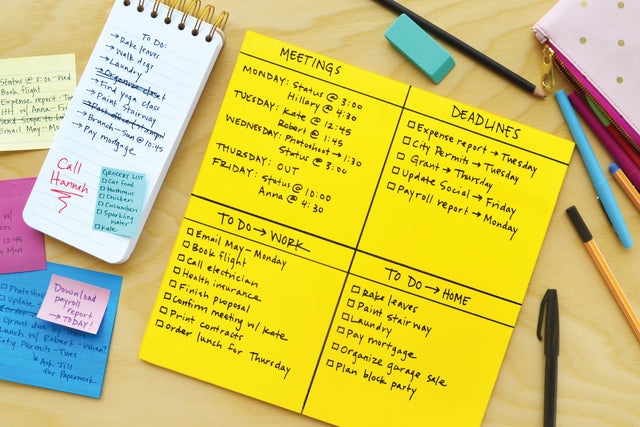 Status @ 3:00 - Wed
Book flight
Expense report - Tu
w/ Anna - Fri
Email May - Mon
To Do:
→ Rake leaves
→ Walk dogs
→ Laundry
→ Organize closet
→ Find yoga class
→ Paint Stairway
→ Post office (stamps)
→ Branch - Sun @ 10:45
→ Pay mortgage
Call
Hannah
GROCERY LIST
□ Cat food
□ Hummus
□ Chicken
□ Cucumbers
□ Sparkling
water
□ Kale
w/
12:45
Mon
Download
payroll
report
→ TODAY!
□ Photosh
□ Update
□ Order
Grant due
Lunch w/ Robert - When?
City Permits - Tues
↳ Ask Jill
for Paperwork
MEETINGS
MONDAY: Status @ 3:00
Hillary @ 4:30
TUESDAY: Kate @ 12:45
Robert @ 1:45
WEDNESDAY: Photoshoot → 1:30
Status @ 3:00
THURSDAY: OUT
FRIDAY: Status @ 10:00
Anna @ 4:30
DEADLINES
□ Expense report → Tuesday
□ City Permits → Tuesday
□ Grant → Thursday
□ Update Social → Friday
□ Payroll report → Monday
TO DO → WORK
□ Email May - Monday
□ Book flight
□ Call electrician
□ Health insurance
□ Finish proposal
□ Confirm meeting w/ Kate
□ Print contracts
□ Order lunch for Thursday
TO DO → HOME
□ Rake leaves
□ Paint Stairway
□ Laundry
□ Pay mortgage
□ Organize garage sale
□ Plan block party